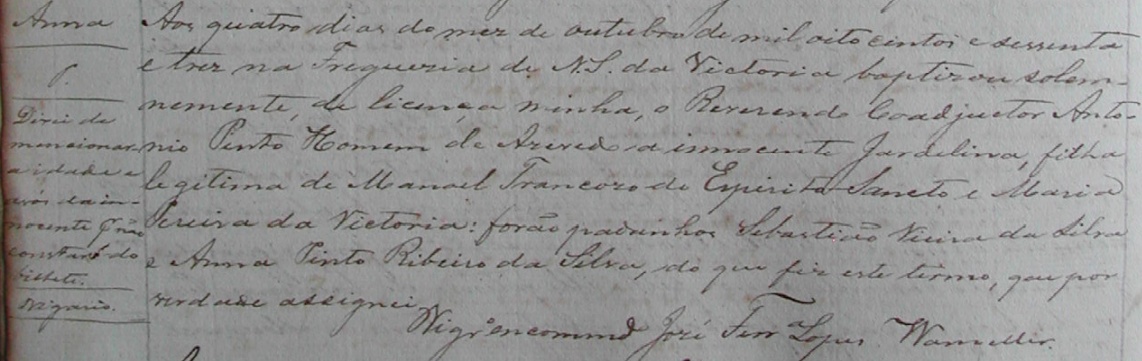 Anna
P.
Deixei de
mencionar
a idade e
avós da in-
nocente p.r não
constaré do
bilhete.
Vigario.
Aos quatro dias do mez de outubro de mil oito centos e sessenta
e trez na Freguezia de N.S. da Victoria baptizou solem-
nemente, de licença minha, o Reverendo Coadjuctor Anto-
nio Pinto Homem de Azevedo a innocente Jardelina, filha
legitima de Manoel Trancozo do Espirito Sancto e Maria
Pereira da Victoria: forão padrinhos Sebastião Vieira da Silva
e Anna Pinto Ribeiro da Silva, do que fiz este termo, que por
verdade assignei.
Vigr.o encommd.o José Ferr.a Lopes Wanzeller.